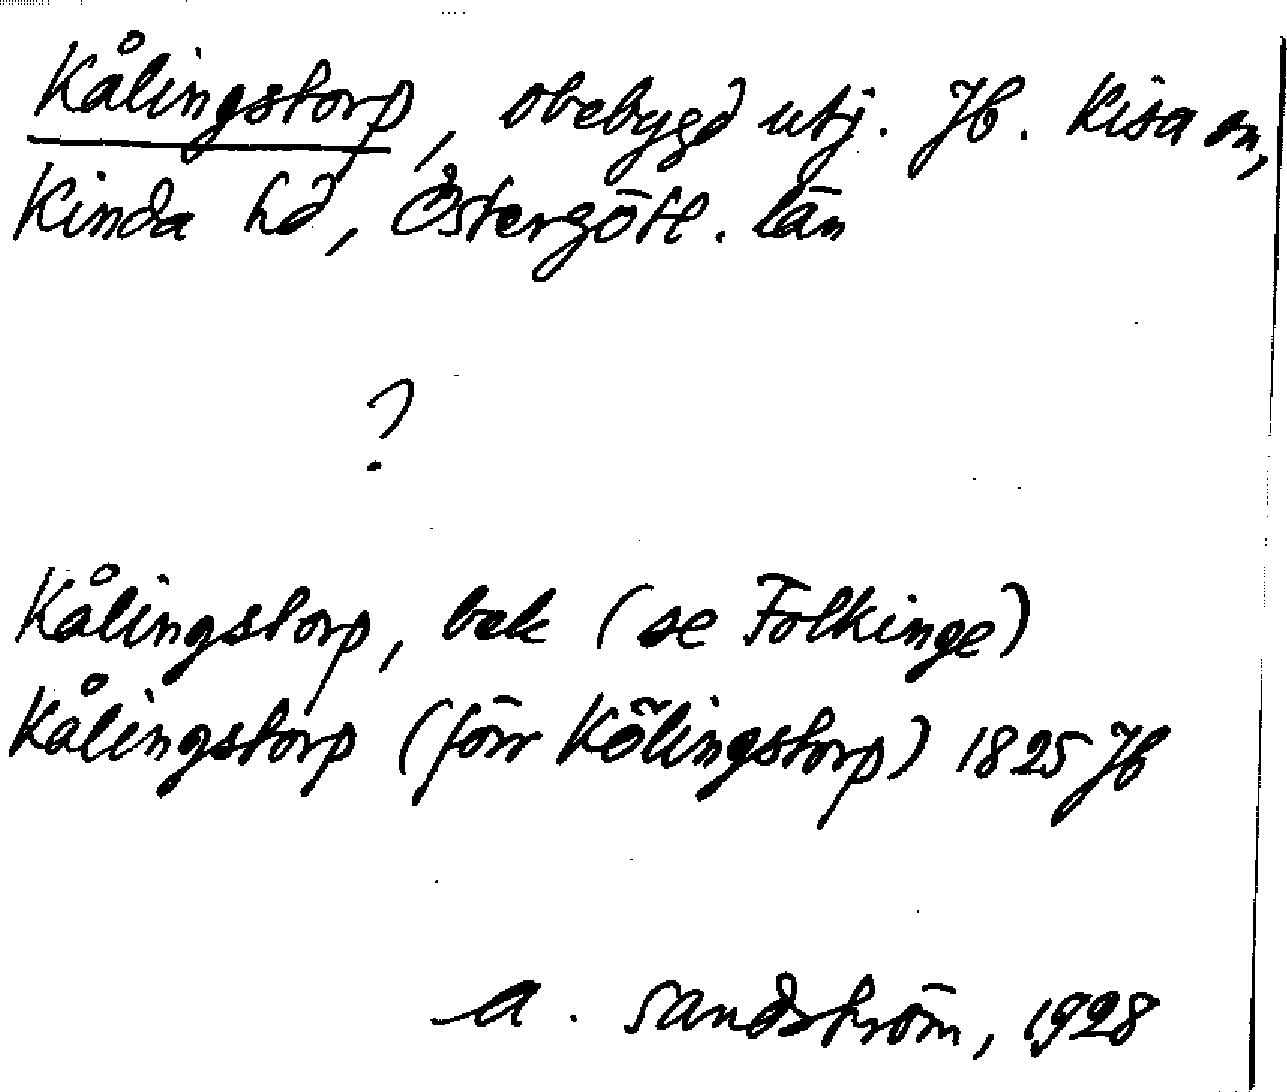 Kålingstorp, obebygd utj. Jb. Kisa sn,
Kinda hd, Östergötl. län
?
Kålingstorp, bek (se Folkinge)
Kålingstorp (förr Kölingstorp) 1825 Jb
A. Sandström, 1928